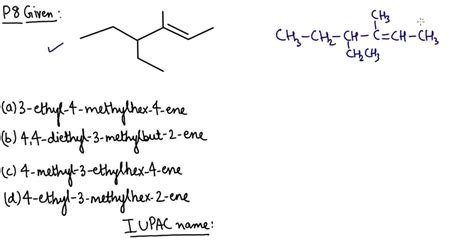 P8 Given:
CH3
CH3-CH2-CH-C=CH-CH3
CH2CH3
(a) 3-ethyl-4-methylhex-4-ene
(b) 4,4-diethyl-3-methylbut-2-ene
(c) 4-methyl-3-ethylhex-4-ene
(d) 4-ethyl-3-methylhex-2-ene
IUPAC name: